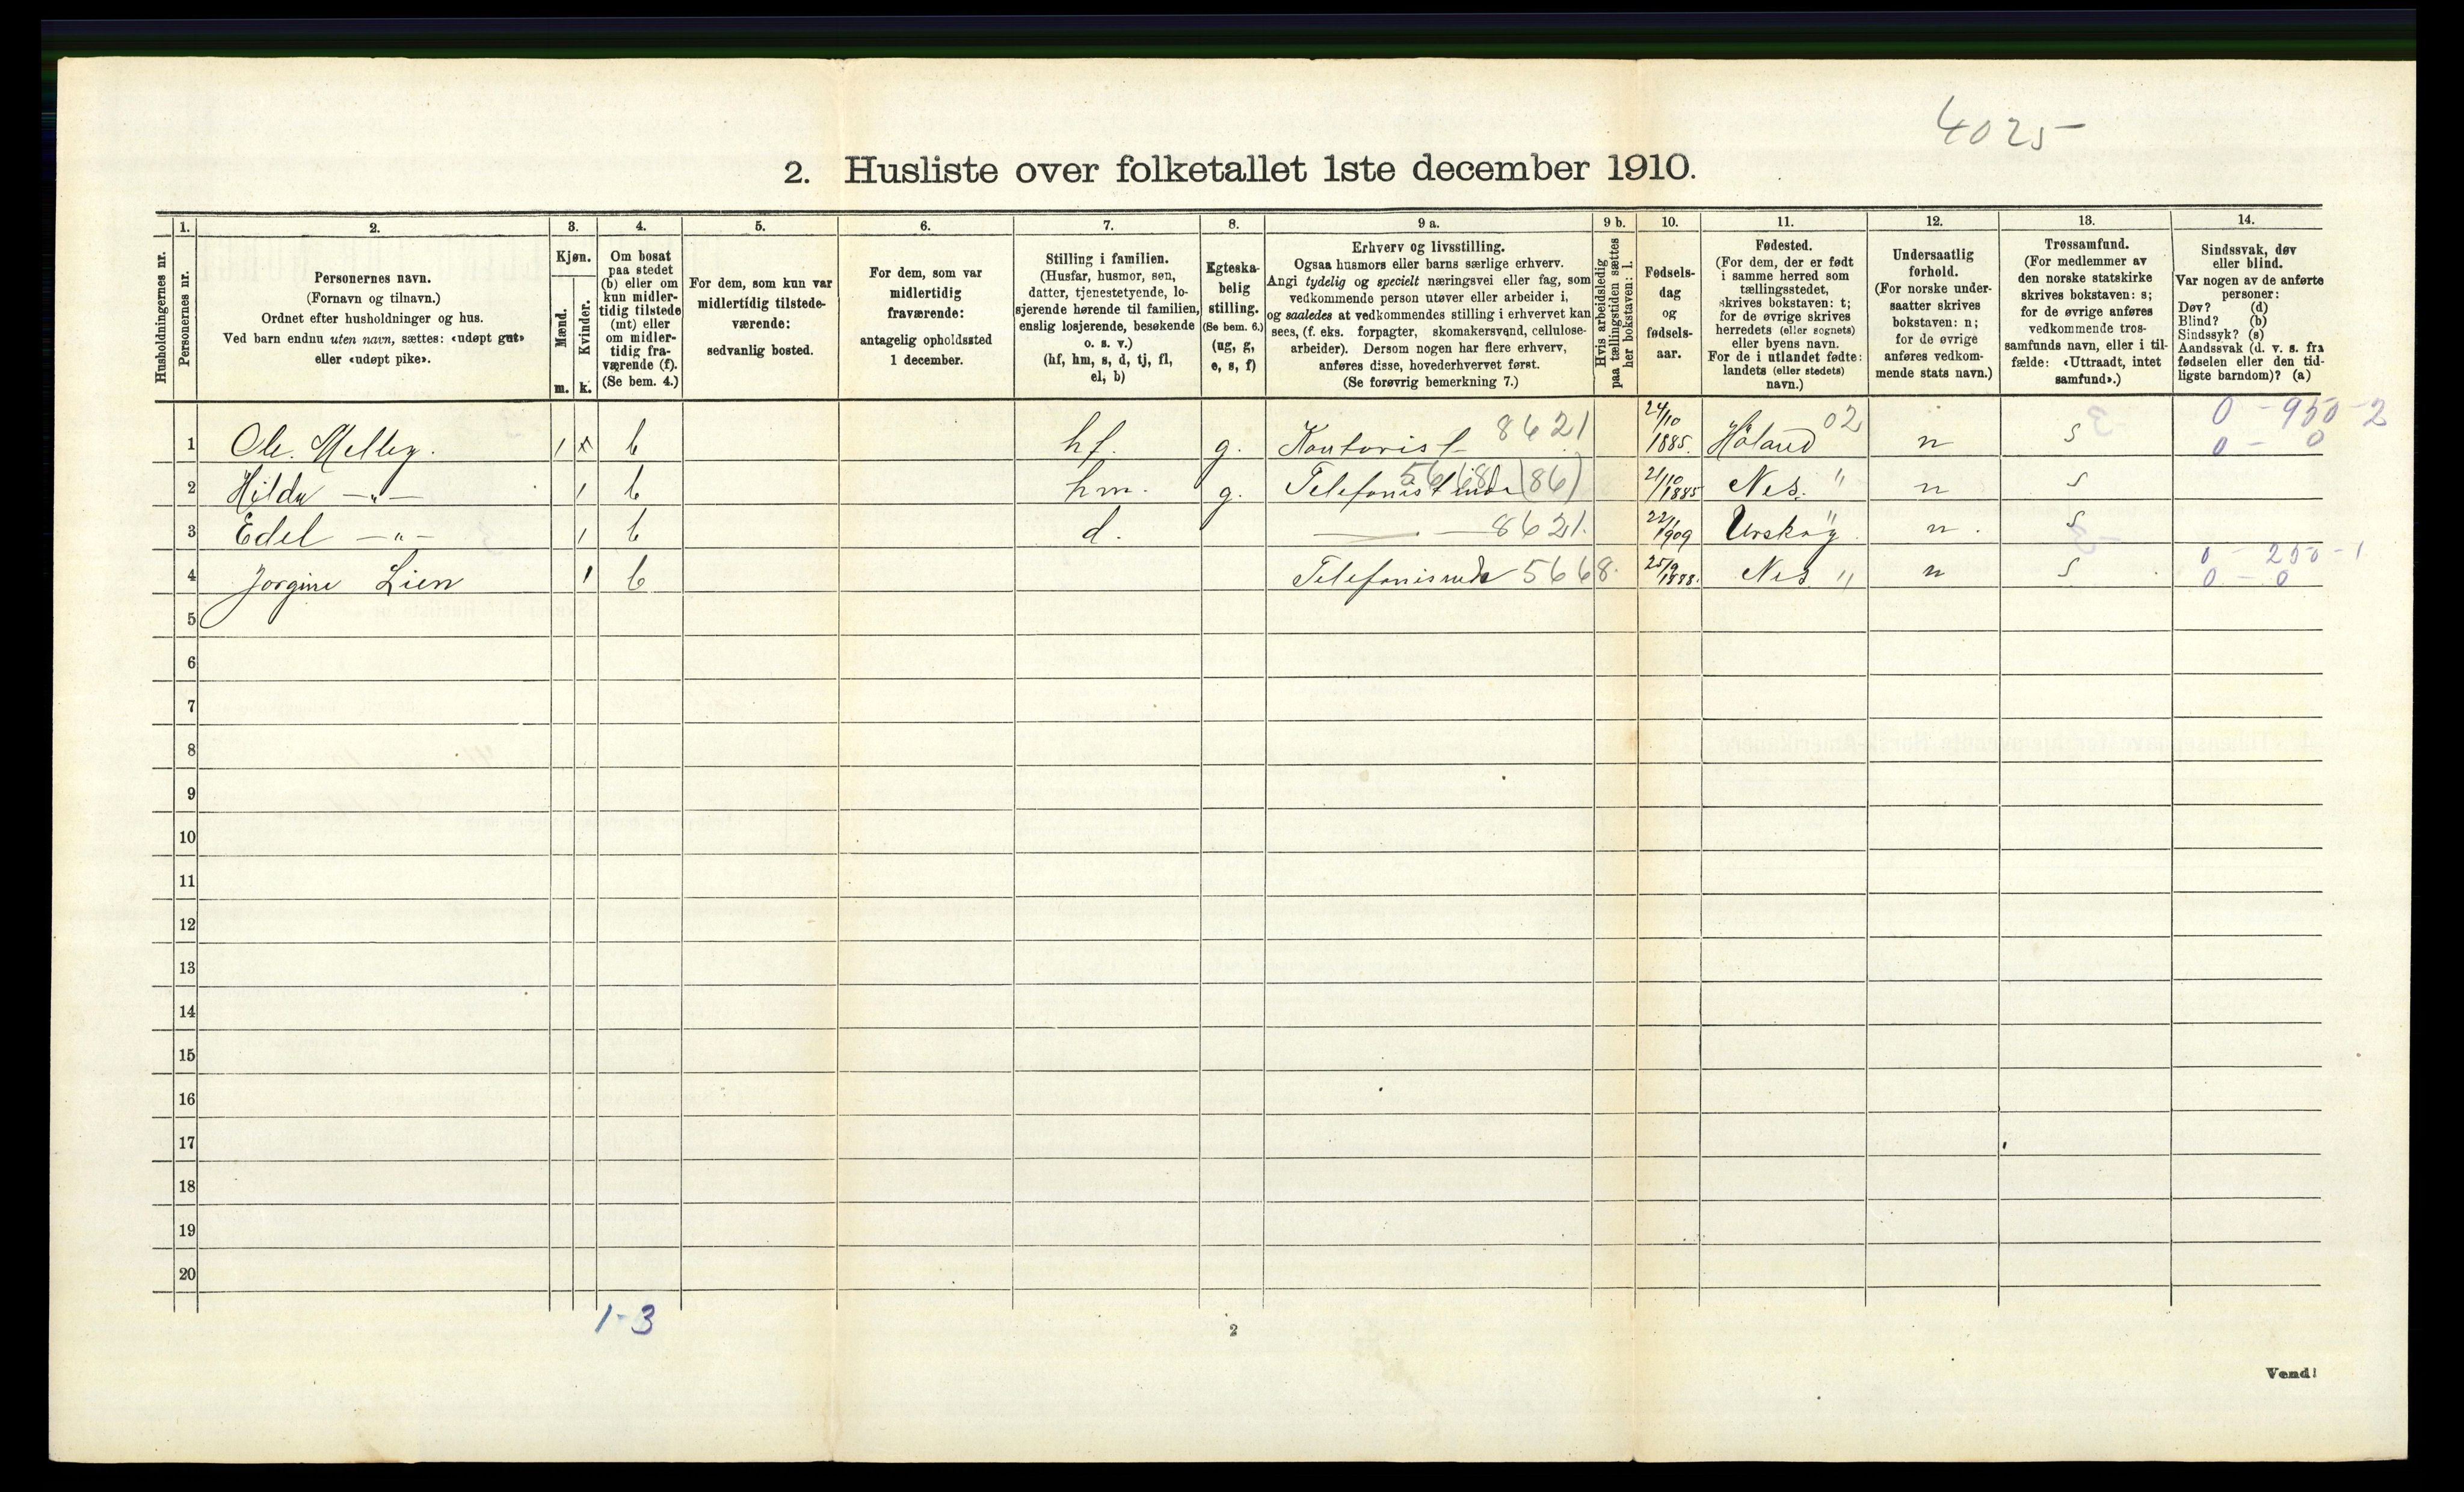 4025
2. Husliste over folketallet 1ste december 1910.
Husholdningernes nr.
1.
Personernes nr.
2.
Personernes navn.
(Fornavn og tilnavn.)
Ordnet efter husholdninger og hus.
Ved barn endnu uten navn, sættes: «udøpt gut»
eller «udøpt pike».
3.
Kjøn.
Mænd.
m.
Kvinder.
k.
4.
Om bosat
paa stedet
(b) eller om
kun midler-
tidig tilstede
(mt) eller
om midler-
tidig fra-
værende (f).
(Se bem. 4.)
5.
For dem, som kun var
midlertidig tilstede-
værende:
sedvanlig bosted.
6.
For dem, som var
midlertidig
fraværende:
antagelig opholdssted
1 december.
7.
Stilling i familien.
(Husfar, husmor, søn,
datter, tjenestetyende, lo-
sjerende hørende til familien,
enslig losjerende, besøkende
o. s. v.)
(hf, hm, s, d, tj, fl,
el, b)
8.
Egteska-
belig
stilling.
(Se bem. 6.)
(ug, g,
e, s, f)
9 a.
Erhverv og livsstilling.
Ogsaa husmors eller barns særlige erhverv.
Angi tydelig og specielt næringsvei eller fag, som
vedkommende person utøver eller arbeider i,
og saaledes at vedkommendes stilling i erhvervet kan
sees, (f. eks. forpagter, skomakersvend, cellulose-
arbeider). Dersom nogen har flere erhverv,
anføres disse, hovederhvervet først.
(Se forøvrig bemerkning 7.)
9 b.
Hvis arbeidsledig
paa tællingstiden sættes
her bokstaven: l.
10.
Fødsels-
dag
og
fødsels-
aar.
11.
Fødested.
(For dem, der er født
i samme herred som
tællingsstedet,
skrives bokstaven: t;
for de øvrige skrives
herredets (eller sognets)
eller byens navn.
For de i utlandet fødte:
landets (eller stedets)
navn.)
12.
Undersaatlig
forhold.
(For norske under-
saatter skrives
bokstaven: n;
for de øvrige
anføres vedkom-
mende stats navn.)
13.
Trossamfund.
(For medlemmer av
den norske statskirke
skrives bokstaven: s;
for de øvrige anføres
vedkommende tros-
samfunds navn, eller i til-
fælde: «Uttraadt, intet
samfund».)
14.
Sindssvak, døv
eller blind.
Var nogen av de anførte
personer:
Døv? (d)
Blind? (b)
Sindssyk? (s)
Aandssvak (d. v. s. fra
fødselen eller den tid-
ligste barndom)? (a)
1 Ole Melby. 1 b hf. g. Kontorist 8621 24/10 1885. Høland 02 n s 0 - 950 - 2
0 - 0
2 Hilda —"— 1 b hm. g. Telefonistinde 5668 (86) 21/10 1885 Nes. " n s
3 Edel —"— 1 b d. — 8621. 22/1 1909 Urskog " n. s
4 Jorgine Lien 1 b 5668. 25/9 1888. Nes " n s 0 - 250 - 1
0 - 0
5
6
7
8
9
10
11
12
13
14
15
16
17
18
19
20
1-3
2
Vend!